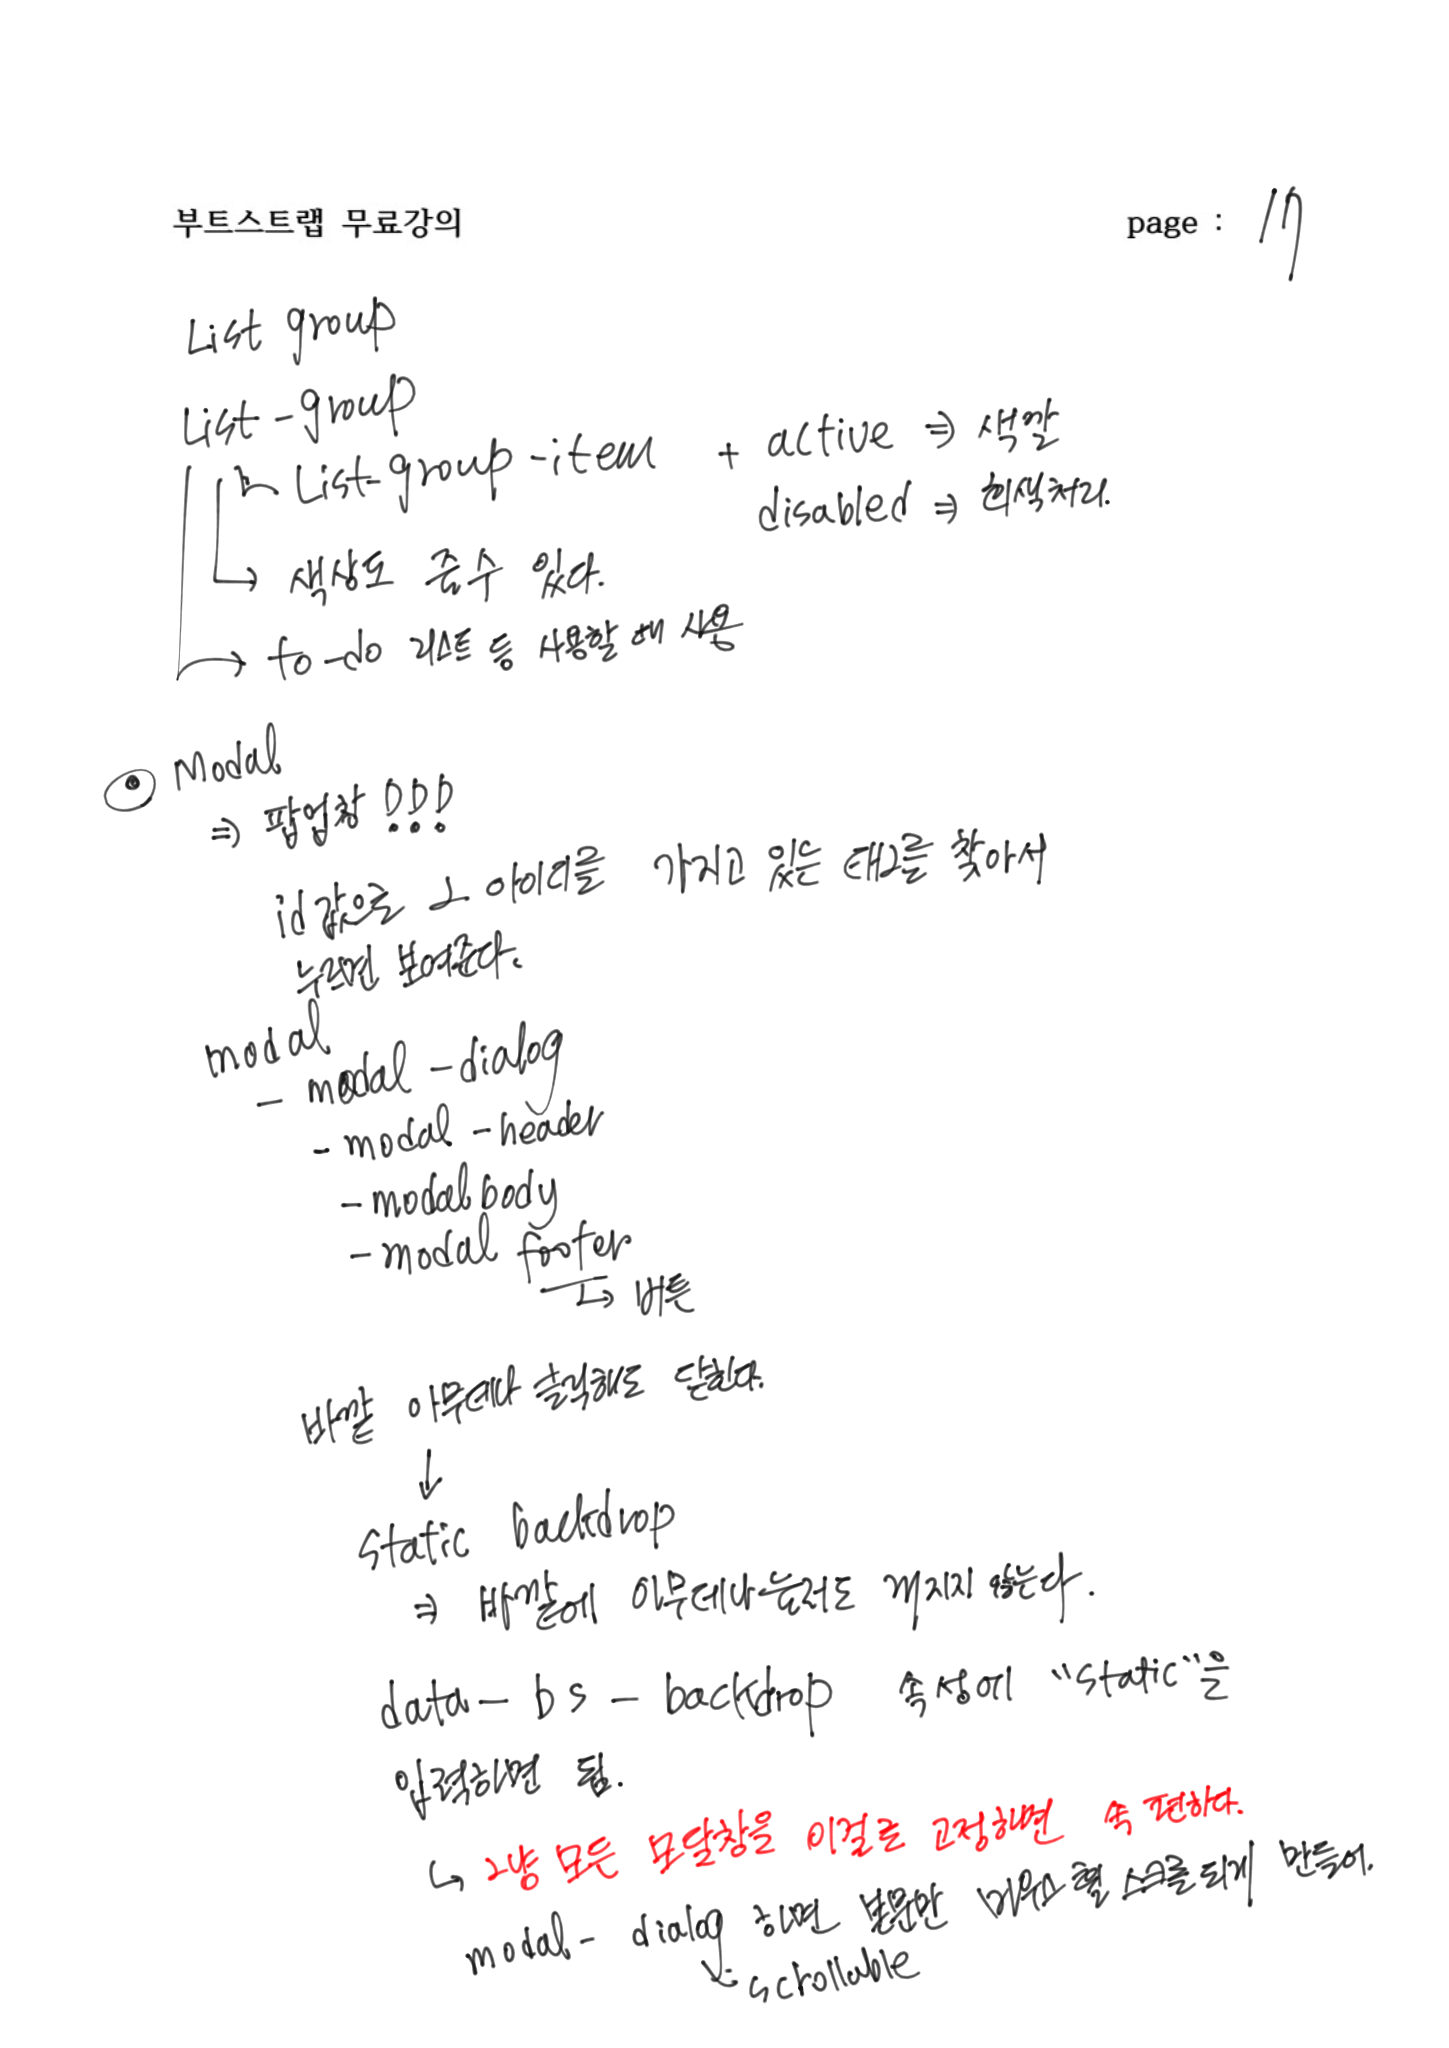 부트스트랩 무료강의 page : 17
List group
List-group
List-group-item + active ⇒ 색깔
disabled ⇒ 회색처리.
→ 색상도 줄수 있다.
→ to-do 리스트 등 사용할 때 사용
⊙ Modal
⇒ 팝업창 !!!
id값으로 그 아이디를 가지고 있는 태그를 찾아서
누르면 보여준다.
modal
- modal-dialog
- modal-header
- modal body
- modal footer
↳ 버튼
바깥 아무데나 클릭해도 닫힌다.
↓
static backdrop
⇒ 바깥에 아무데나 눌러도 꺼지지 않는다.
data-bs-backdrop 속성에 "static"을
입력하면 됨.
↳ 그냥 모든 모달창을 이걸로 고정하면 속 편하다.
modal-dialog 하면 본문만 마우스 휠 스크롤 되게 만들어.
scrollable